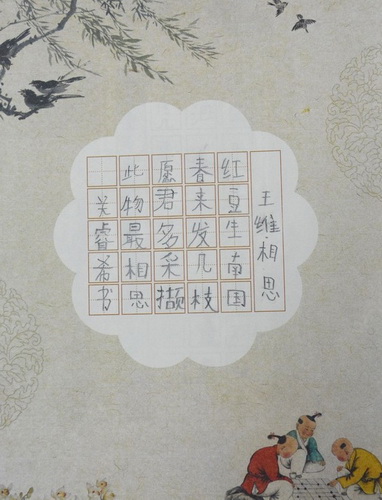 王维·相思
红豆生南国
春来发几枝
愿君多采撷
此物最相思
关睿希书